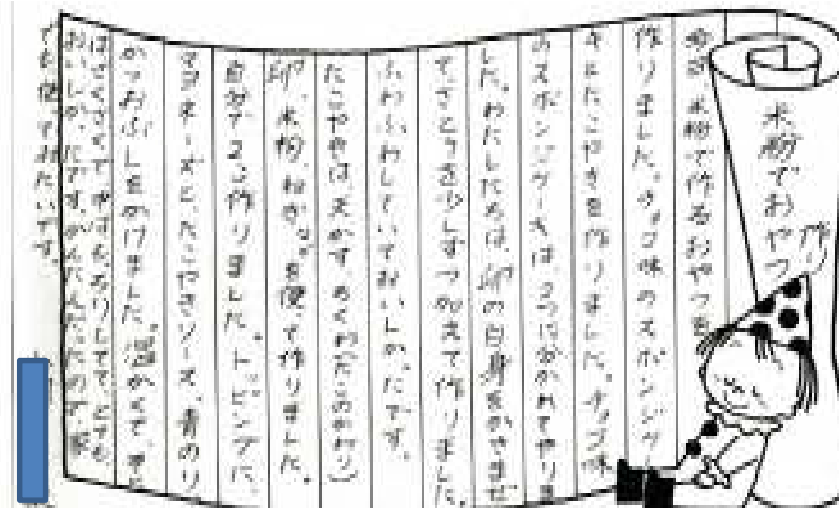 米粉でおやつ作り
米粉で作るおやつを
作りました。チョコ味のスポンジケー
キとたこやきを作りました。チョコ味
のスポンジケーキは、2つに分かれてやりま
した。わたしたちは、卵の白身をかきまぜ
て、さとうを少しずつ加えて作りました。
ふわふわしていておいしかったです。
たこやきは、天かす、ちくわ(たこのかわり)
卵、米粉、ねぎを使って作りました。
自分で作りました。トッピングに、
マヨネーズと、たこやきソース、青のり
かつおぶしをかけました。温かくて、
とても
おいしかったです。かんたんだったので、家
でも作ってみたいです。